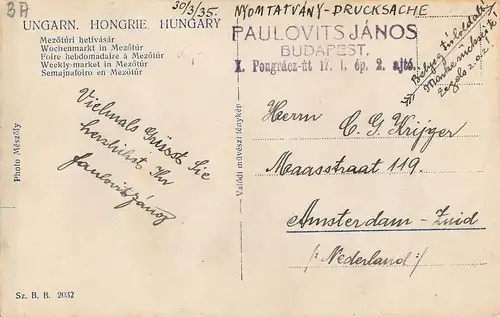 BA
30/3/35.
NYOMTATVÁNY-DRUCKSACHE
UNGARN. HONGRIE. HUNGARY
Mezőtúri hetivásár
Wochenmarkt in Mezőtúr
Foire hebdomadaire à Mezőtúr
Weekly-market in Mezőtúr
Semajnafoiro en Mezőtúr
PAULOVITS JÁNOS
BUDAPEST.
X. Pongrácz-út 17. I. ép. 2. ajtó.
Bélyeg túloldalt
Markenrückseite
Vielmals Grüsst Sie
herzlichst Ihr
Paulovits János
Photo Mészöly
Valódi művészi fénykép
Herrn C. G. Krijger
Maasstraat 119.
Amsterdam-Zuid
/:Nederland:/
Sz. B. B. 2032